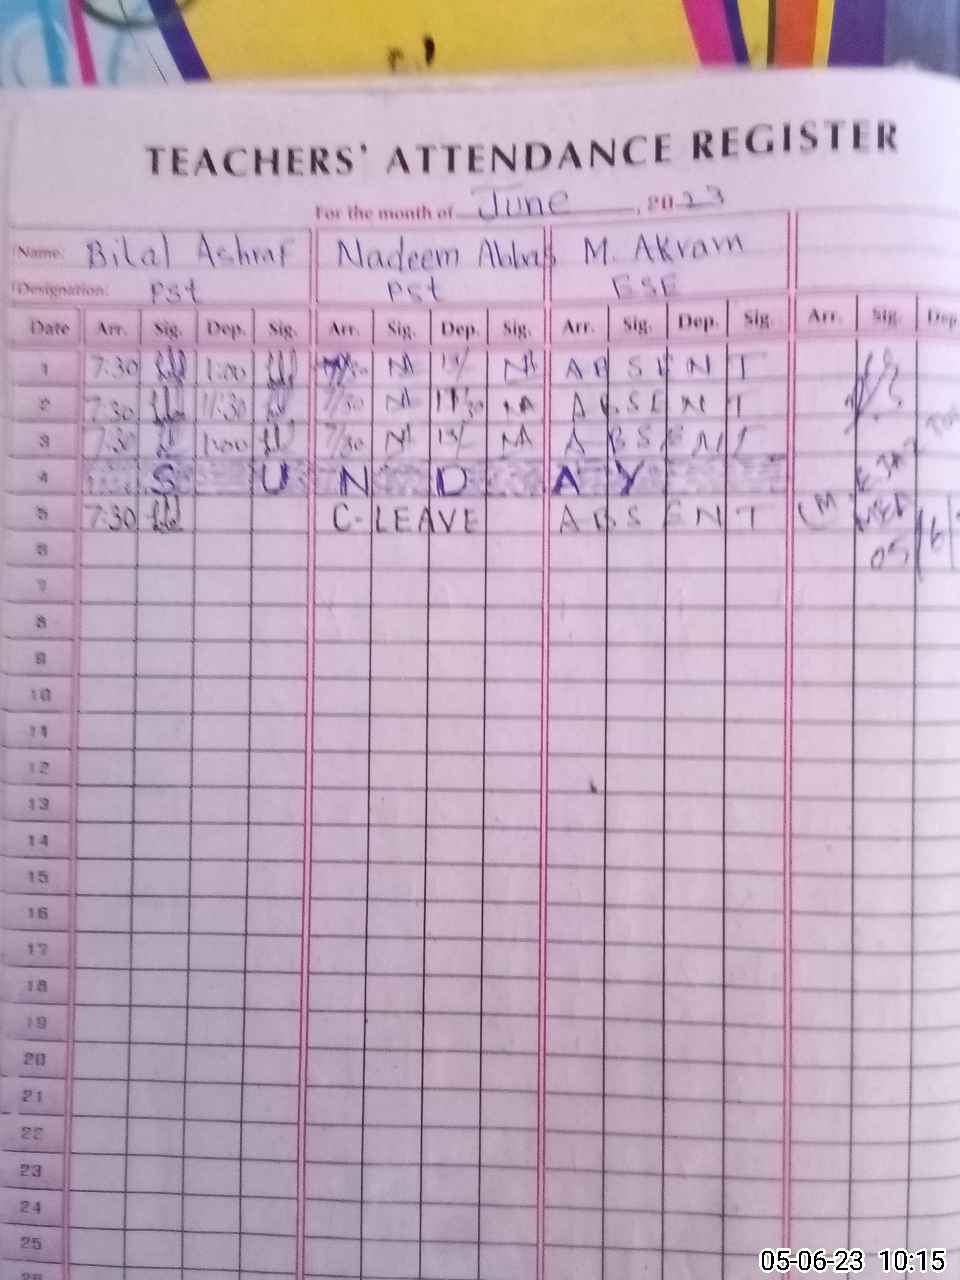 TEACHERS' ATTENDANCE REGISTER
For the month of June, 2023
Name: Bilal Ashraf Nadeem Abbas M. Akram
Designation: Pst Pst ESE
Date Arr. Sig. Dep. Sig. Arr. Sig. Dep. Sig. Arr. Sig. Dep. Sig. Arr. Sig. Dep.
1 7:30 1:00 NA 1/ NA ABSENT
2 7:30 11:30 7/30 NA 11/30 NA ABSENT
3 7:30 1:00 7/30 NA 1/ NA ABSENT
4 SUNDAY
5 7:30 C-LEAVE ABSENT
6 05 6
7
8
9
10
11
12
13
14
15
16
17
18
19
20
21
22
23
24
25
05-06-23 10:15